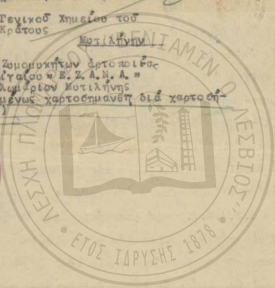 Γενικοῦ Χημείου τοῦ
Κράτους
Μυτιλήνην
Ζυμομυκήτων ἀρτοποιΐας
ιγαίου " Ε.Ζ.Α.Ν.Α. "
Μυτιλήνης
μένως χαρτοσημανθῆ διά χαρτοσή-
ΛΕΣΧΗ ΠΛΟ ΒΕΝΙΑΜΙΝ Ο ΛΕΣΒΙΟΣ
ΕΤΟΣ ΙΔΡΥΣΗΣ 1878